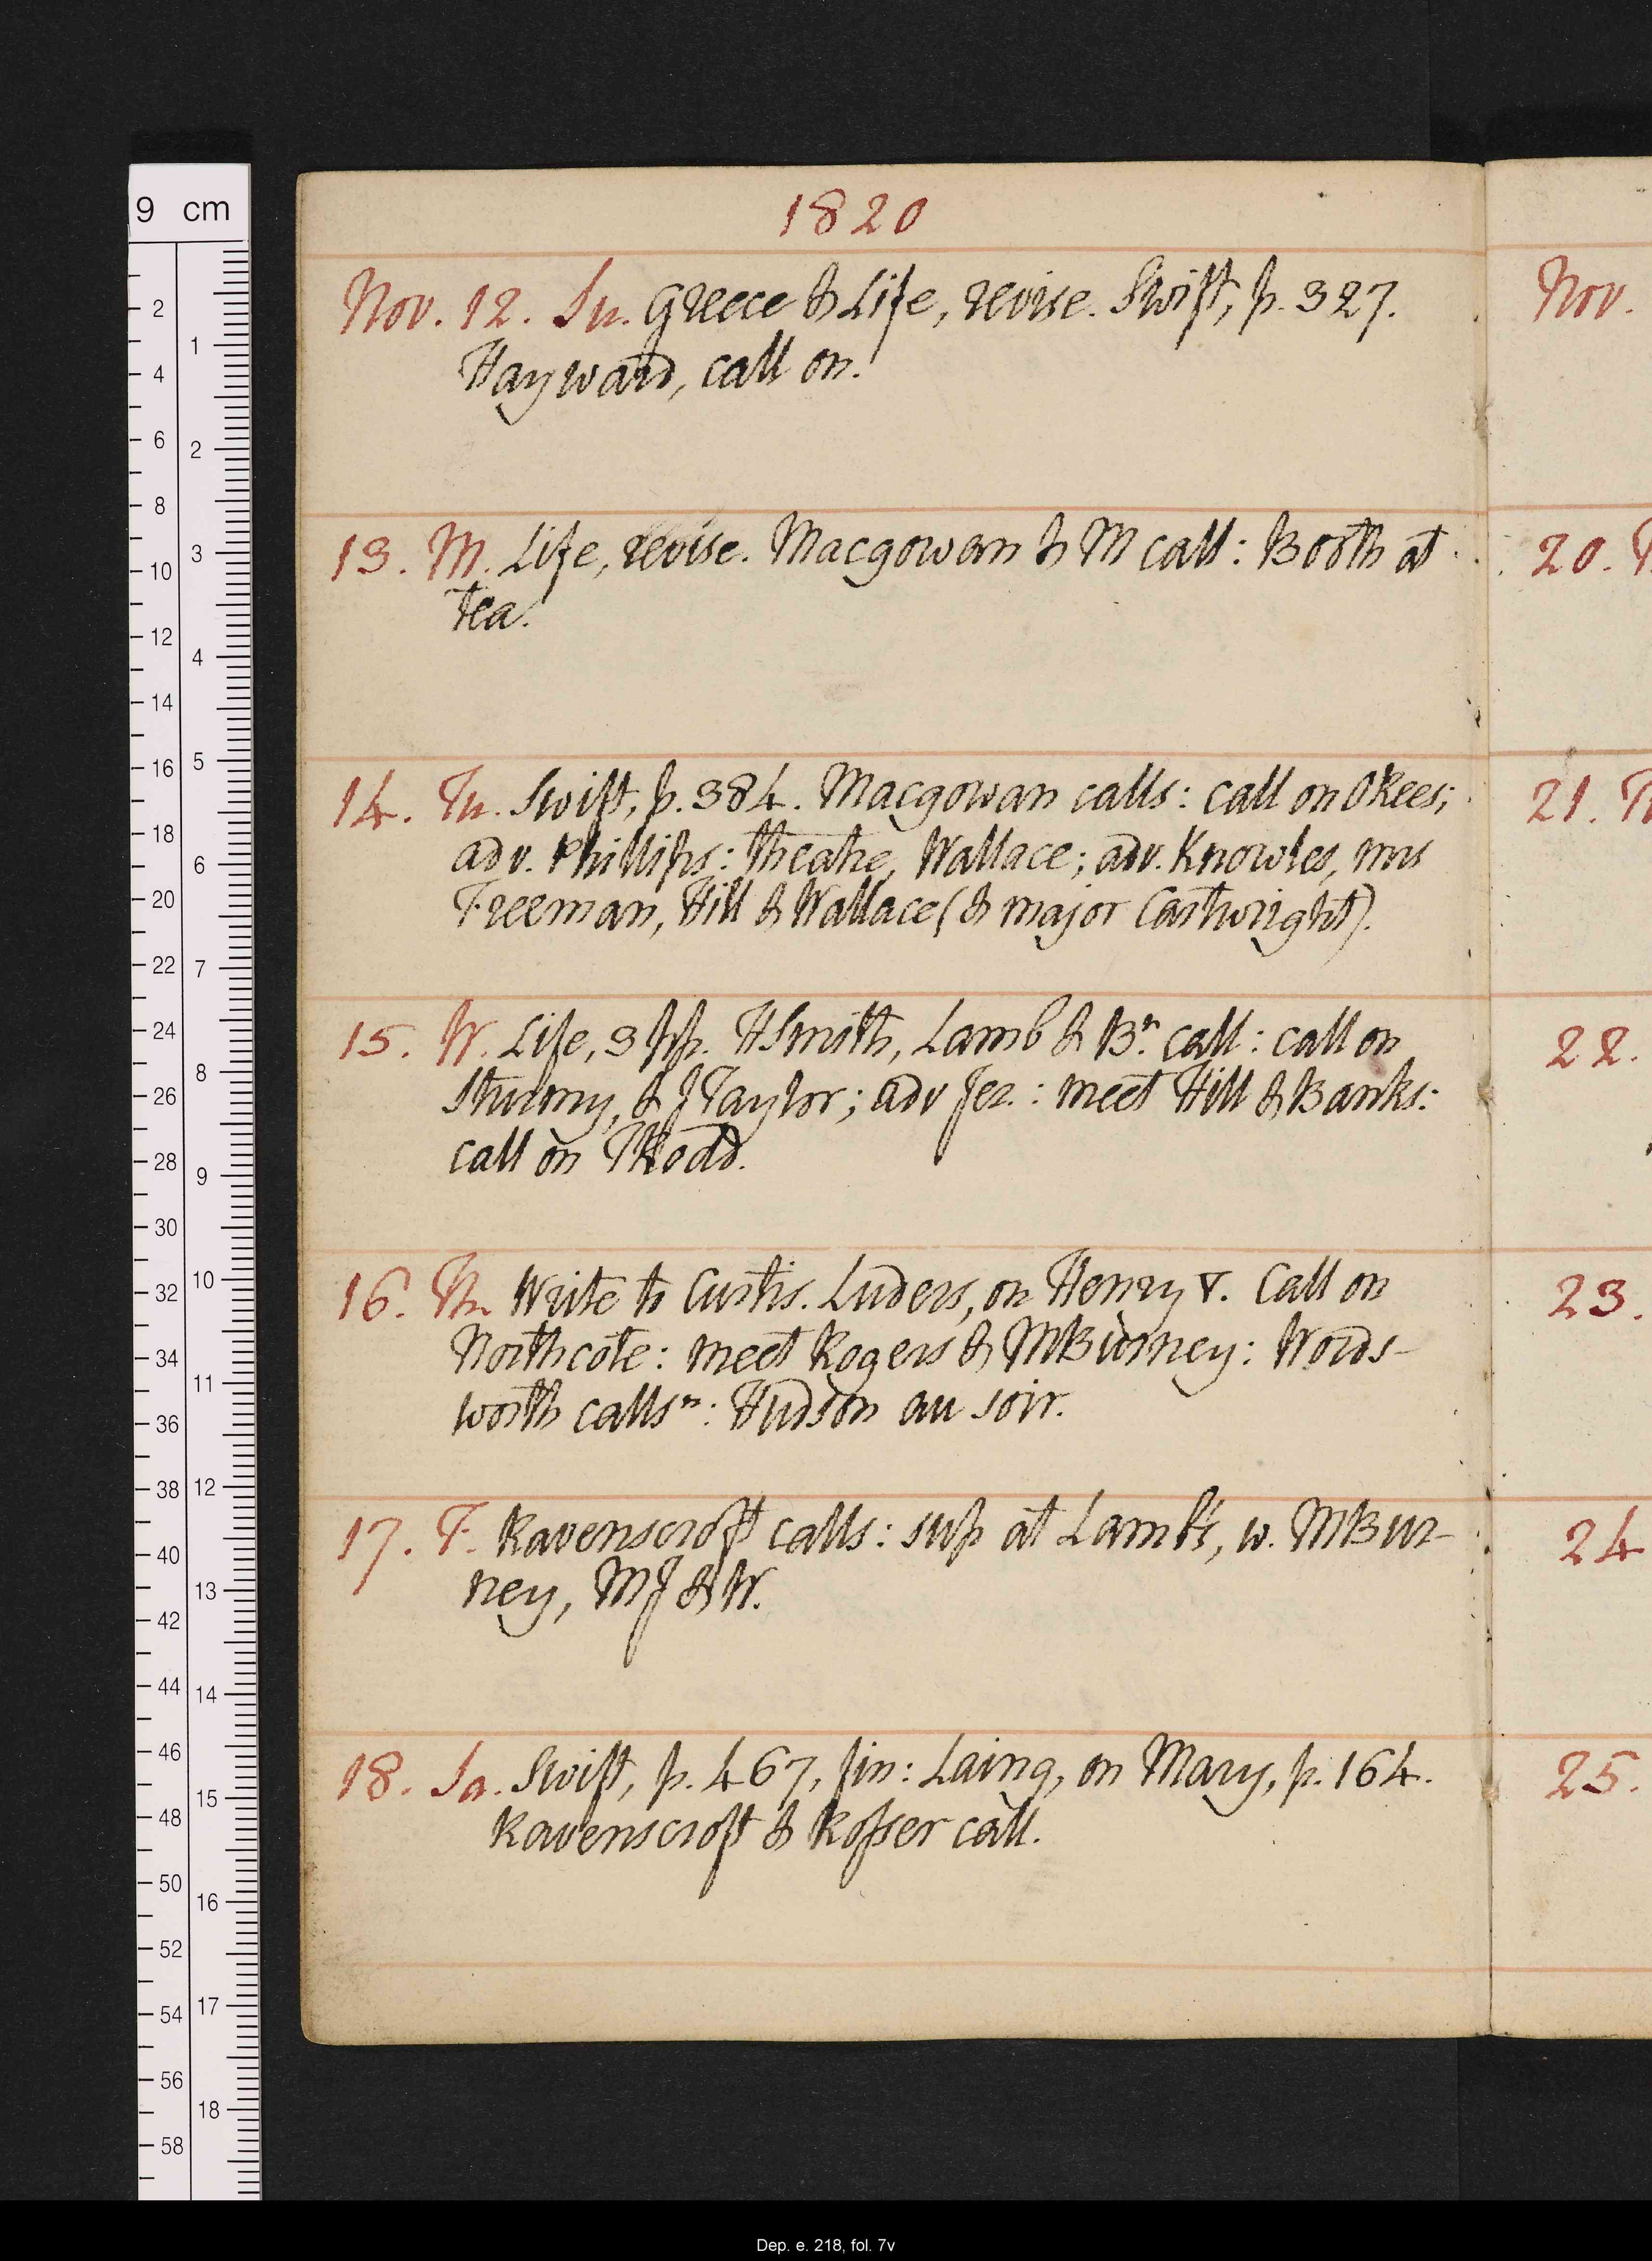 1820
Nov. 12. Su. Greece & Life, revise. Swift, p. 327.
Hayward, call on.
13. M. Life, revise. Macgowan & M call: Booth at
tea.
14. Tu. Swift, p. 384. Macgowan calls: call on ORees;
adv. Phillips: theatre, Wallace; adv. Knowles, mrs
Freeman, Hill & Wallace (& major Cartwright).
15. W. Life, 3 pp. HSmith, Lamb & Bn. call: call on
Sturmy, & JTaylor; adv Jer.: meet Hill & Banks:
call on TRodd.
16. Th. Write to Curtis. Luders, on Henry V. Call on
Northcote: meet Rogers & MBurney: Words-
worth calls n: Hudson au soir.
17. F. Ravenscroft calls: sup at Lamb's, w. MBur-
ney, MJ & W.
18. Sa. Swift, p. 467, fin: Laing, on Mary, p. 164.
Ravenscroft & Rosser call.
Nov.
20.
21.
22.
23.
24
25.
9 cm
2
4
6
8
10
12
14
16
18
20
22
24
26
28
30
32
34
36
38
40
42
44
46
48
50
52
54
56
58
1
2
3
4
5
6
7
8
9
10
11
12
13
14
15
16
17
18
Dep. e. 218, fol. 7v